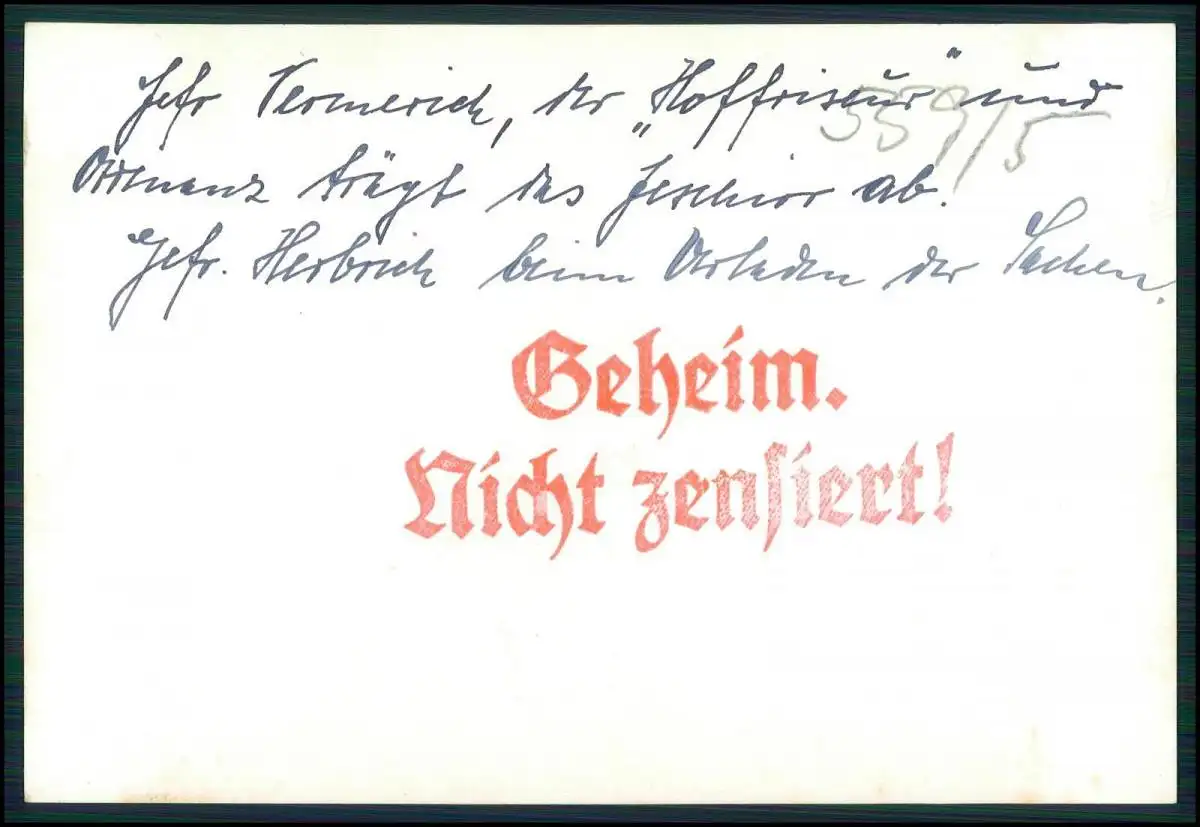 Gefr Vermerich, der „Hoffriseur" und
559/5
Ordenanz trägt das Geschirr ab.
Gefr. Herbrich beim Verladen der Sachen.
Geheim.
Nicht zensiert!